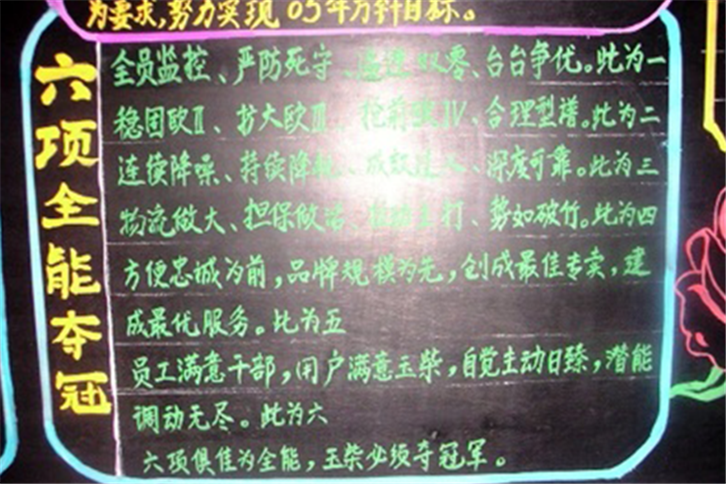 为要求,努力实现03年方针目标。
六项全能夺冠
全员监控、严防死守、双零、台台争优。此为一
稳固欧Ⅱ、扩大欧Ⅲ、抢前欧Ⅳ、合理型谱。此为二
连续降噪、持续降耗、深度可靠。此为三
物流做大、担保做活、主打、势如破竹。此为四
方便忠诚为前,品牌规模为先,创成最佳专卖,建
成最优服务。此为五
员工满意干部,用户满意玉柴,自觉主动日臻,潜能
调动无尽。此为六
六项俱佳为全能,玉柴必须夺冠军。